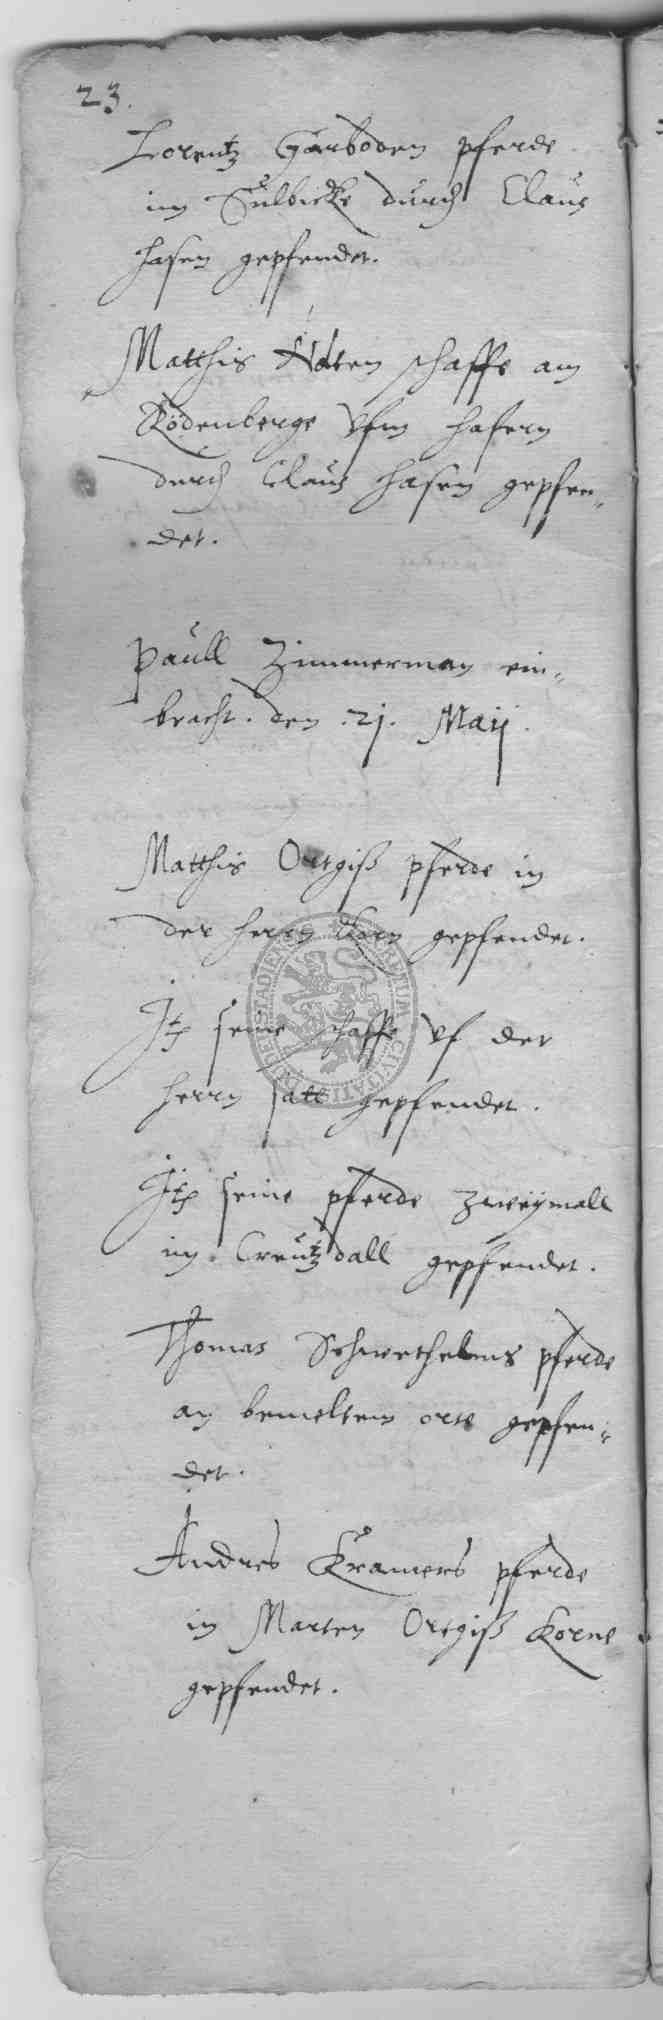 23.
Lorentz Garboden pferde
im Sulbicke durch Claus
Hasen gepfendet.
Matthis schaffe am
Rodenberge vfm hafern
durch Claus Hasen gepfen„
det.
Paull Zimmerman ein„
bracht. den .21. Maij.
Matthis Ortgiß pferde in
der herrn Korn gepfendet.
Jtem seine schaffe vf der
herrn satt gepfendet.
Jtem seine pferde zweymall
im Creutzdall gepfendet.
Thomas Schwethelms pferde
an bemeltem orte gepfen„
det.
Andres Kramers pferde
in Marten Ortgiß Korne
gepfendet.